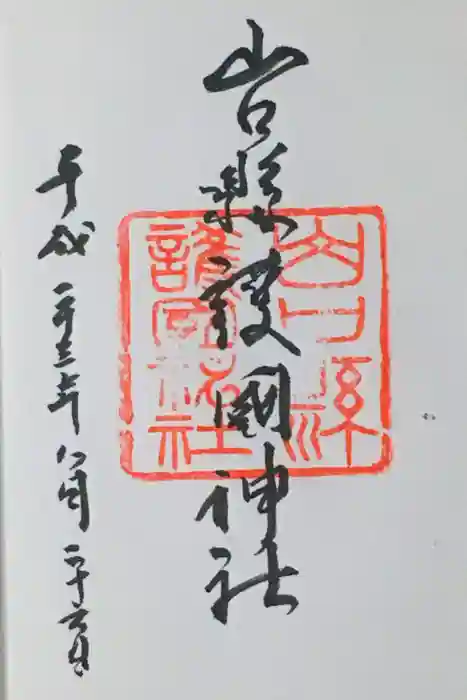 山口縣護國神社
山口縣護國神社
平成二十三年八月二十六日